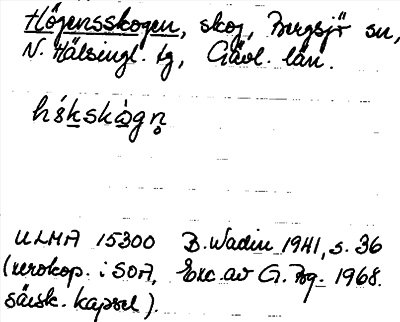 Högensskogen, skog, Bergsjö sn,
N. Hälsingl. tg, Gävl. län.
hǿkskògn̥
ULMA 15300 B. Wadin 1941, s. 36
(xerokop. i SOA, Exc. av G. Bg. 1968.
särsk. kapsel).